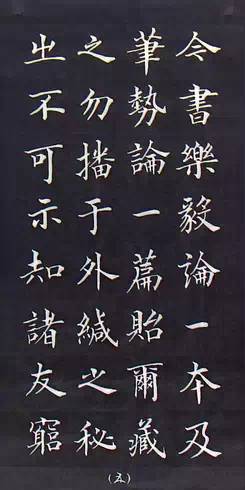 今書樂毅論一本及
筆勢論一篇貽爾藏
之勿播于外緘之秘
之不可示知諸友窮
(五)